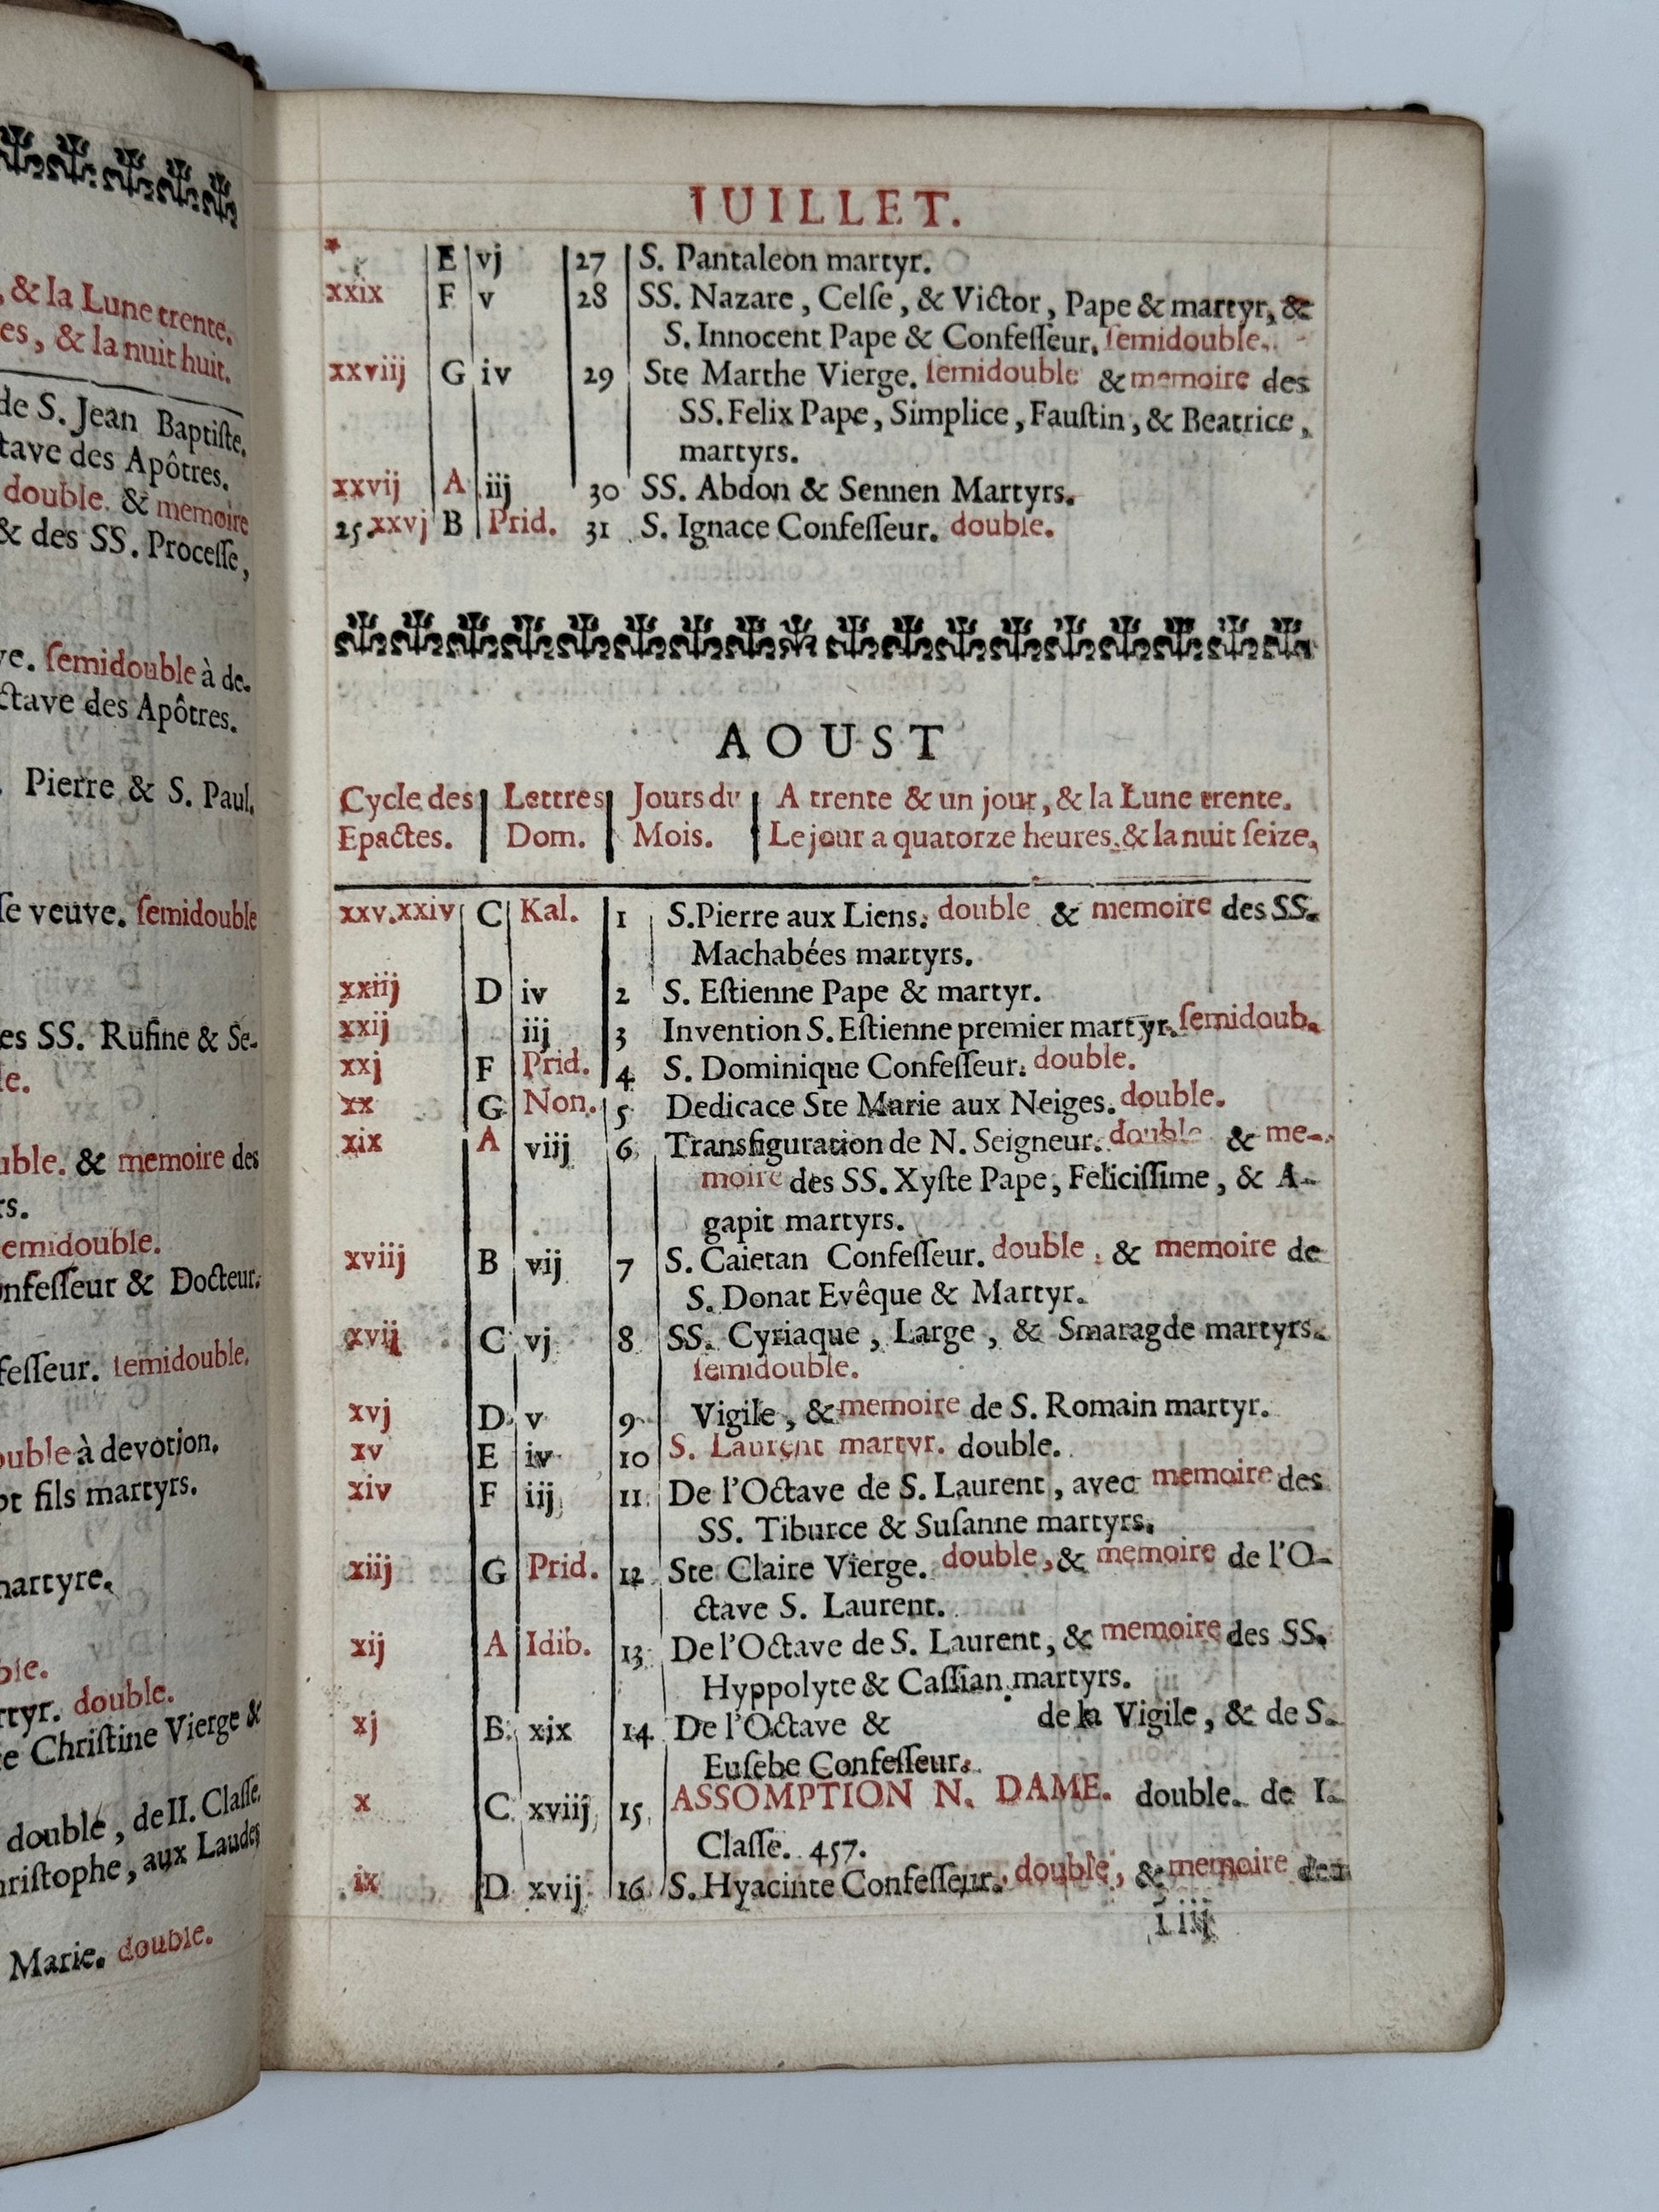 , & la Lune trente.
es, & la nuit huit.
de S. Jean Baptiſte.
tave des Apôtres.
double. & memoire
& des SS. Proceſſe,
ve. ſemidouble à de-
ctave des Apôtres.
Pierre & S. Paul.
ſe veuve. ſemidouble
es SS. Rufine & Se-
le.
uble. & memoire des
rs.
emidouble.
onfeſſeur & Docteur.
feſſeur. ſemidouble.
ouble à devotion.
pt fils martyrs.
martyre.
ble.
rtyr. double.
te Chriſtine Vierge &
double, de II. Claſſe.
hriſtophe, aux Laudes
Marie. double.
IUILLET.
* E vj 27 S. Pantaleon martyr.
xxix F v 28 SS. Nazare, Celſe, & Victor, Pape & martyr, &
S. Innocent Pape & Confeſſeur. ſemidouble.
xxviij G iv 29 Ste Marthe Vierge. ſemidouble & memoire des
SS. Felix Pape, Simplice, Fauſtin, & Beatrice,
martyrs.
xxvij A iij 30 SS. Abdon & Sennen Martyrs.
25.xxvj B Prid. 31 S. Ignace Confeſſeur. double.
AOUST
Cycle des Lettres Jours du A trente & un jour, & la Lune trente.
Epactes. Dom. Mois. Le jour a quatorze heures. & la nuit ſeize.
xxv.xxiv C Kal. 1 S. Pierre aux Liens. double & memoire des SS.
Machabées martyrs.
xxiij D iv 2 S. Eſtienne Pape & martyr.
xxij iij 3 Invention S. Eſtienne premier martyr. ſemidoub.
xxj F Prid. 4 S. Dominique Confeſſeur. double.
xx G Non. 5 Dedicace Ste Marie aux Neiges. double.
xix A viij 6 Transfiguration de N. Seigneur. double & me-
moire des SS. Xyſte Pape, Feliciſſime, & A-
gapit martyrs.
xviij B vij 7 S. Caietan Confeſſeur. double. & memoire de
S. Donat Evêque & Martyr.
xvij C vj 8 SS. Cyriaque, Large, & Smaragde martyrs.
ſemidouble.
xvj D v 9 Vigile, & memoire de S. Romain martyr.
xv E iv 10 S. Laurent martyr. double.
xiv F iij 11 De l'Octave de S. Laurent, avec memoire des
SS. Tiburce & Suſanne martyrs.
xiij G Prid. 12 Ste Claire Vierge. double, & memoire de l'O-
ctave S. Laurent.
xij A Idib. 13 De l'Octave de S. Laurent, & memoire des SS.
Hyppolyte & Caſſian martyrs.
xj B xix 14 De l'Octave & de la Vigile, & de S.
Euſebe Confeſſeur.
x C xviij 15 ASSOMPTION N. DAME. double. de I.
Claſſe. 457.
ix D xvij 16 S. Hyacinte Confeſſeur. double, & memoire de
i iij